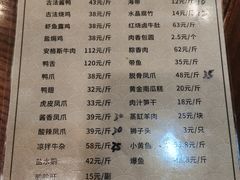 古法酱鸭 43元/斤 海带 12元/斤
古法烧鸡 38元/斤 水晶腐竹 14元/斤
虾鱼露鸡 38元/斤 红烧卤牛肚
盐焗鸡 38元/斤 肉香包圆 2.5元/个
安格斯牛肉 112元/斤 粽香肉 62元/斤
鸭舌 120元/斤 带鱼 35元/斤
鸭爪 38元/斤 脱骨凤爪
鸭翅 32元/斤 黄金南瓜糕 20元/斤
虎皮凤爪 35元/斤 肉汁笋干 18元/斤
酱香凤爪 39元/斤 蒸缸羊肉 25元/块
酸辣凤爪 39元/斤 狮子头
凉拌牛杂 58元/斤 小黄鱼
盐水鹅 42元/斤 爆鱼
15元/副